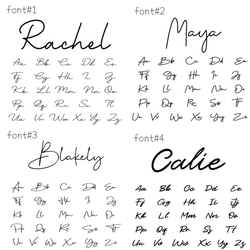 font#1
Rachel
Aa Bb Cc Dd Ee
Ff Gg Hh Ii Jj
Kk Ll Mm Nn Oo
Pp Qq Rr Ss Tt
Uu Vv Ww Xx Yy Zz
font#2
Maya
Aa Bb Cc Dd Ee
Ff Gg Hh Ii Jj
Kk Ll Mm Nn Oo
Pp Qq Rr Ss Tt
Uu Vv Ww Xx Yy Zz
font#3
Blakely
Aa Bb Cc Dd Ee
Ff Gg Hh Ii Jj
Kk Ll Mm Nn Oo
Pp Qq Rr Ss Tt
Uu Vv Ww Xx Yy Zz
font#4
Calie
Aa Bb Cc Dd Ee
Ff Gg Hh Ii Jj
Kk Ll Mm Nn Oo
Pp Qq Rr Ss Tt
Uu Vv Ww Xx Yy Zz